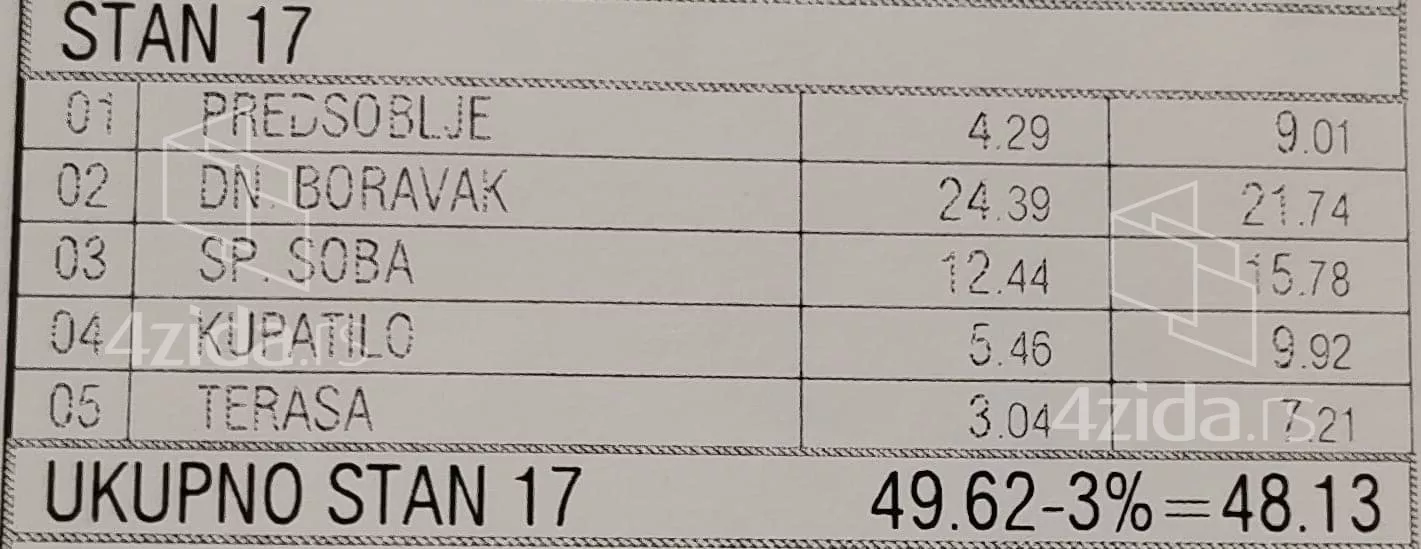 STAN 17
01 PREDSOBLJE 4.29 9.01
02 DN. BORAVAK 24.39 21.74
03 SP. SOBA 12.44 15.78
04 KUPATILO 5.46 9.92
05 TERASA 3.04 7.21
UKUPNO STAN 17 49.62-3%=48.13
4zida.rs
4zida.rs